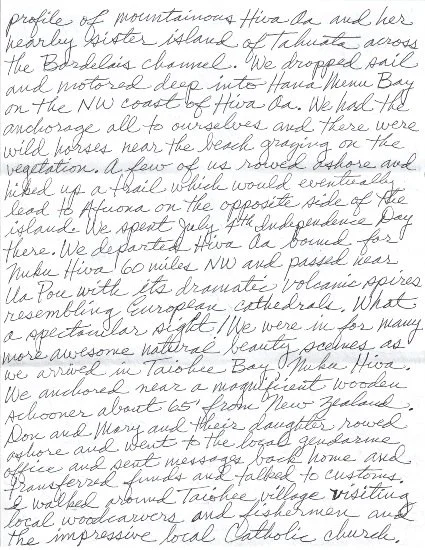 profile of mountainous Hiva Oa and her
nearby sister island of Tahuata across
the Bordelais channel. We dropped sail
and motored deep into Hana Menu Bay
on the NW coast of Hiva Oa. We had the
anchorage all to ourselves and there were
wild horses near the beach grazing on the
vegetation. A few of us rowed ashore and
hiked up a trail which would eventually
lead to Atuona on the opposite side of the
island. We spent July 4th Independence Day
there. We departed Hiva Oa bound for
Nuku Hiva 60 miles NW and passed near
Ua Pou with its dramatic volcanic spires
resembling European cathedrals. What
a spectacular sight! We were in for many
more awesome natural beauty scenes as
we arrived in Taiohee Bay, Nuku Hiva.
We anchored near a magnificent wooden
schooner about 65' from New Zealand.
Don and Mary and their daughter rowed
ashore and went to the local gendarme
office and sent messages back home and
transferred funds and talked to customs.
I walked around Taiohee village visiting
local woodcarvers and fishermen and
the impressive local Catholic church.